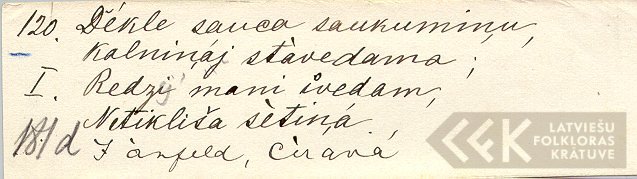 120. Dēkle sauca saukumiņu,
Kalniņāj stāvedama;
I. Redzij mani švedam,
Netikliša sētiņā
181/d J. ānfeld, Cīravā
LATVIEŠU
FOLKLORAS
KRĀTUVE